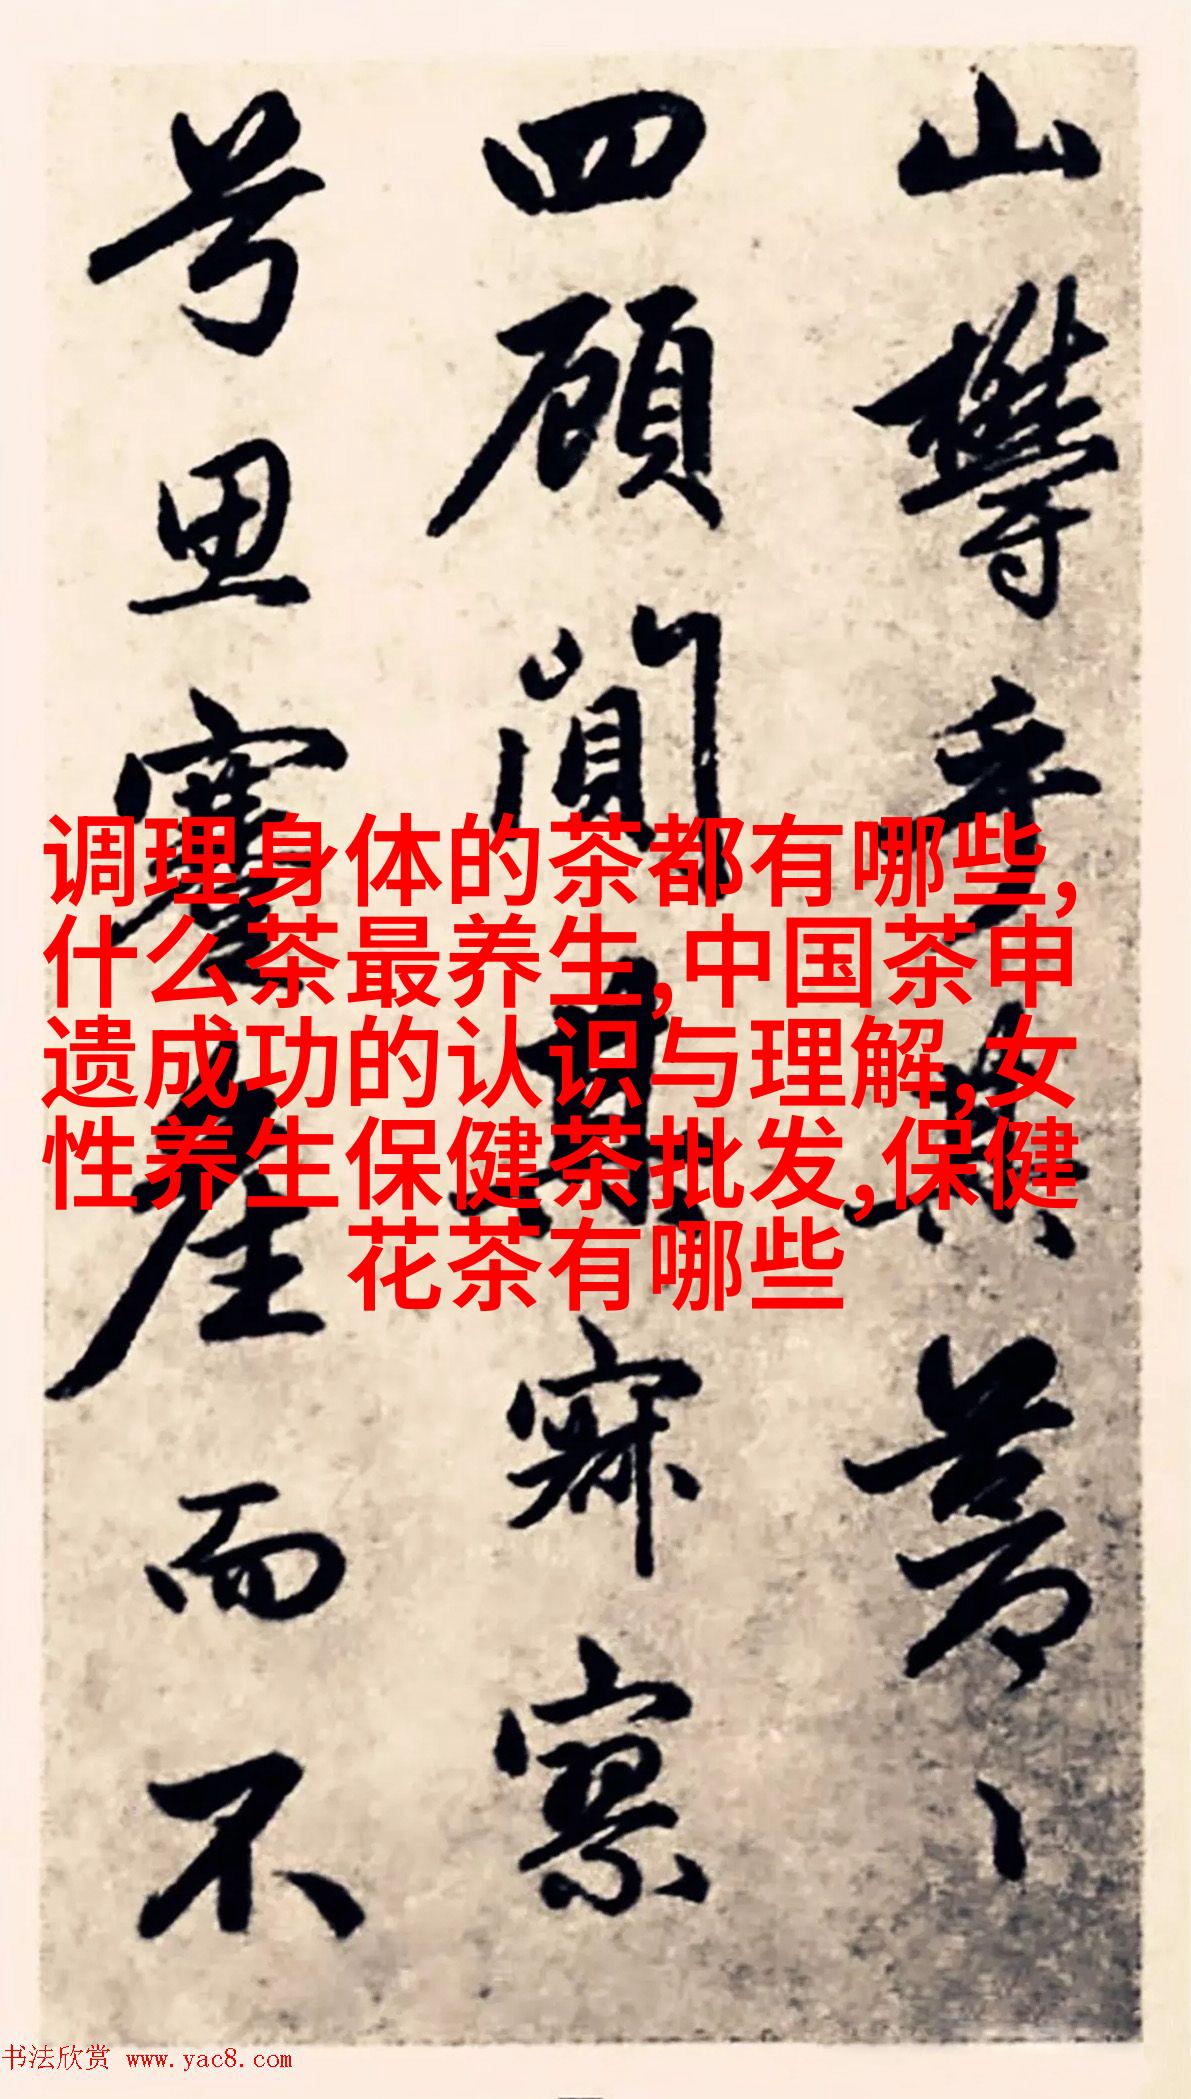 山欝乎其蒼〻
四顧闃其寂寥
兮思蹇產而不
调理身体的茶都有哪些,
什么茶最养生,中国茶申
遗成功的认识与理解,女
性养生保健茶批发,保健
花茶有哪些
书法欣赏 www.yac8.com